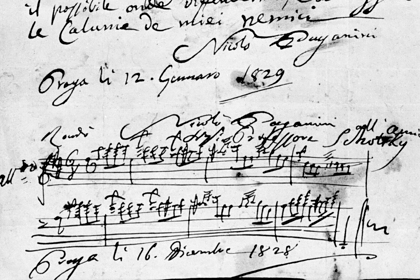 il possibile onde
le Calunie de miei nemici
Nicolò Paganini
Praga li 12. Gennaro 1829
Nicolò Paganini
Rondò Professore all' amico
Praga li 16. Dicembre 1828